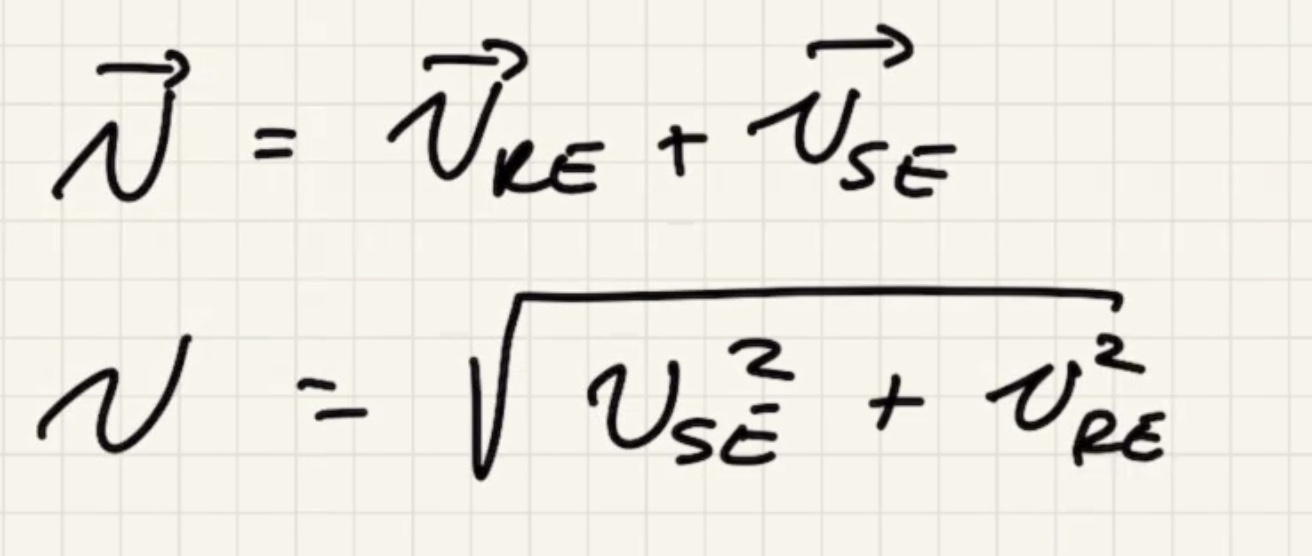 $\vec{v} = \vec{v}_{RE} + \vec{v}_{SE}$
$v = \sqrt{v_{SE}^2 + v_{RE}^2}$